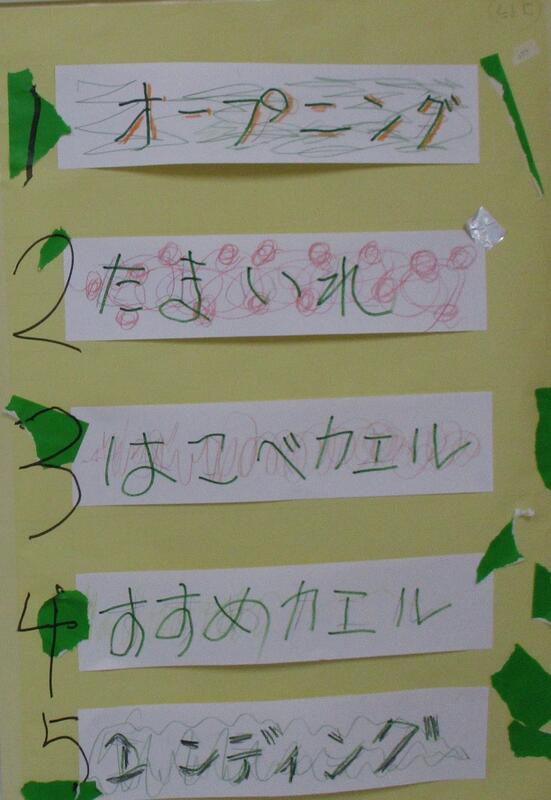 1 オープニング
2 たまいれ
3 はこべカエル
4 すすめカエル
5 エンディング